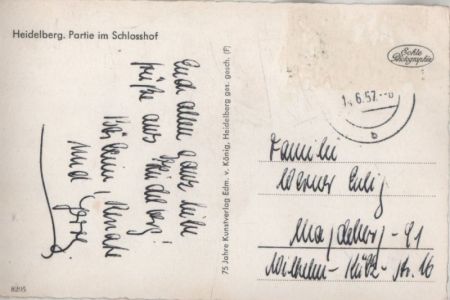 Heidelberg. Partie im Schlosshof
Echte
Photographie
1.6.57.-8
Euch allen ganz liebe
Grüße aus Heidelberg!
Renate
und
75 Jahre Kunstverlag Edm. v. König, Heidelberg ges. gesch. (F)
Familie
Werner
Magdeburg-S1
Wilhelm-Külz-Str. 16
8295